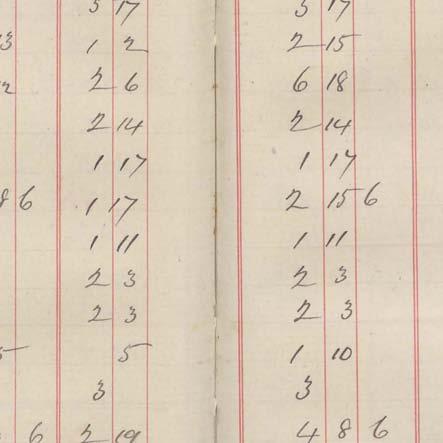 3 17 3 17
3 1 2 2 15
2 2 6 6 18
2 14 2 14
1 17 1 17
8 6 1 17 2 15 6
1 11 1 11
2 3 2 3
2 3 2 3
5 5 1 10
3 3
6 2 19 4 8 6